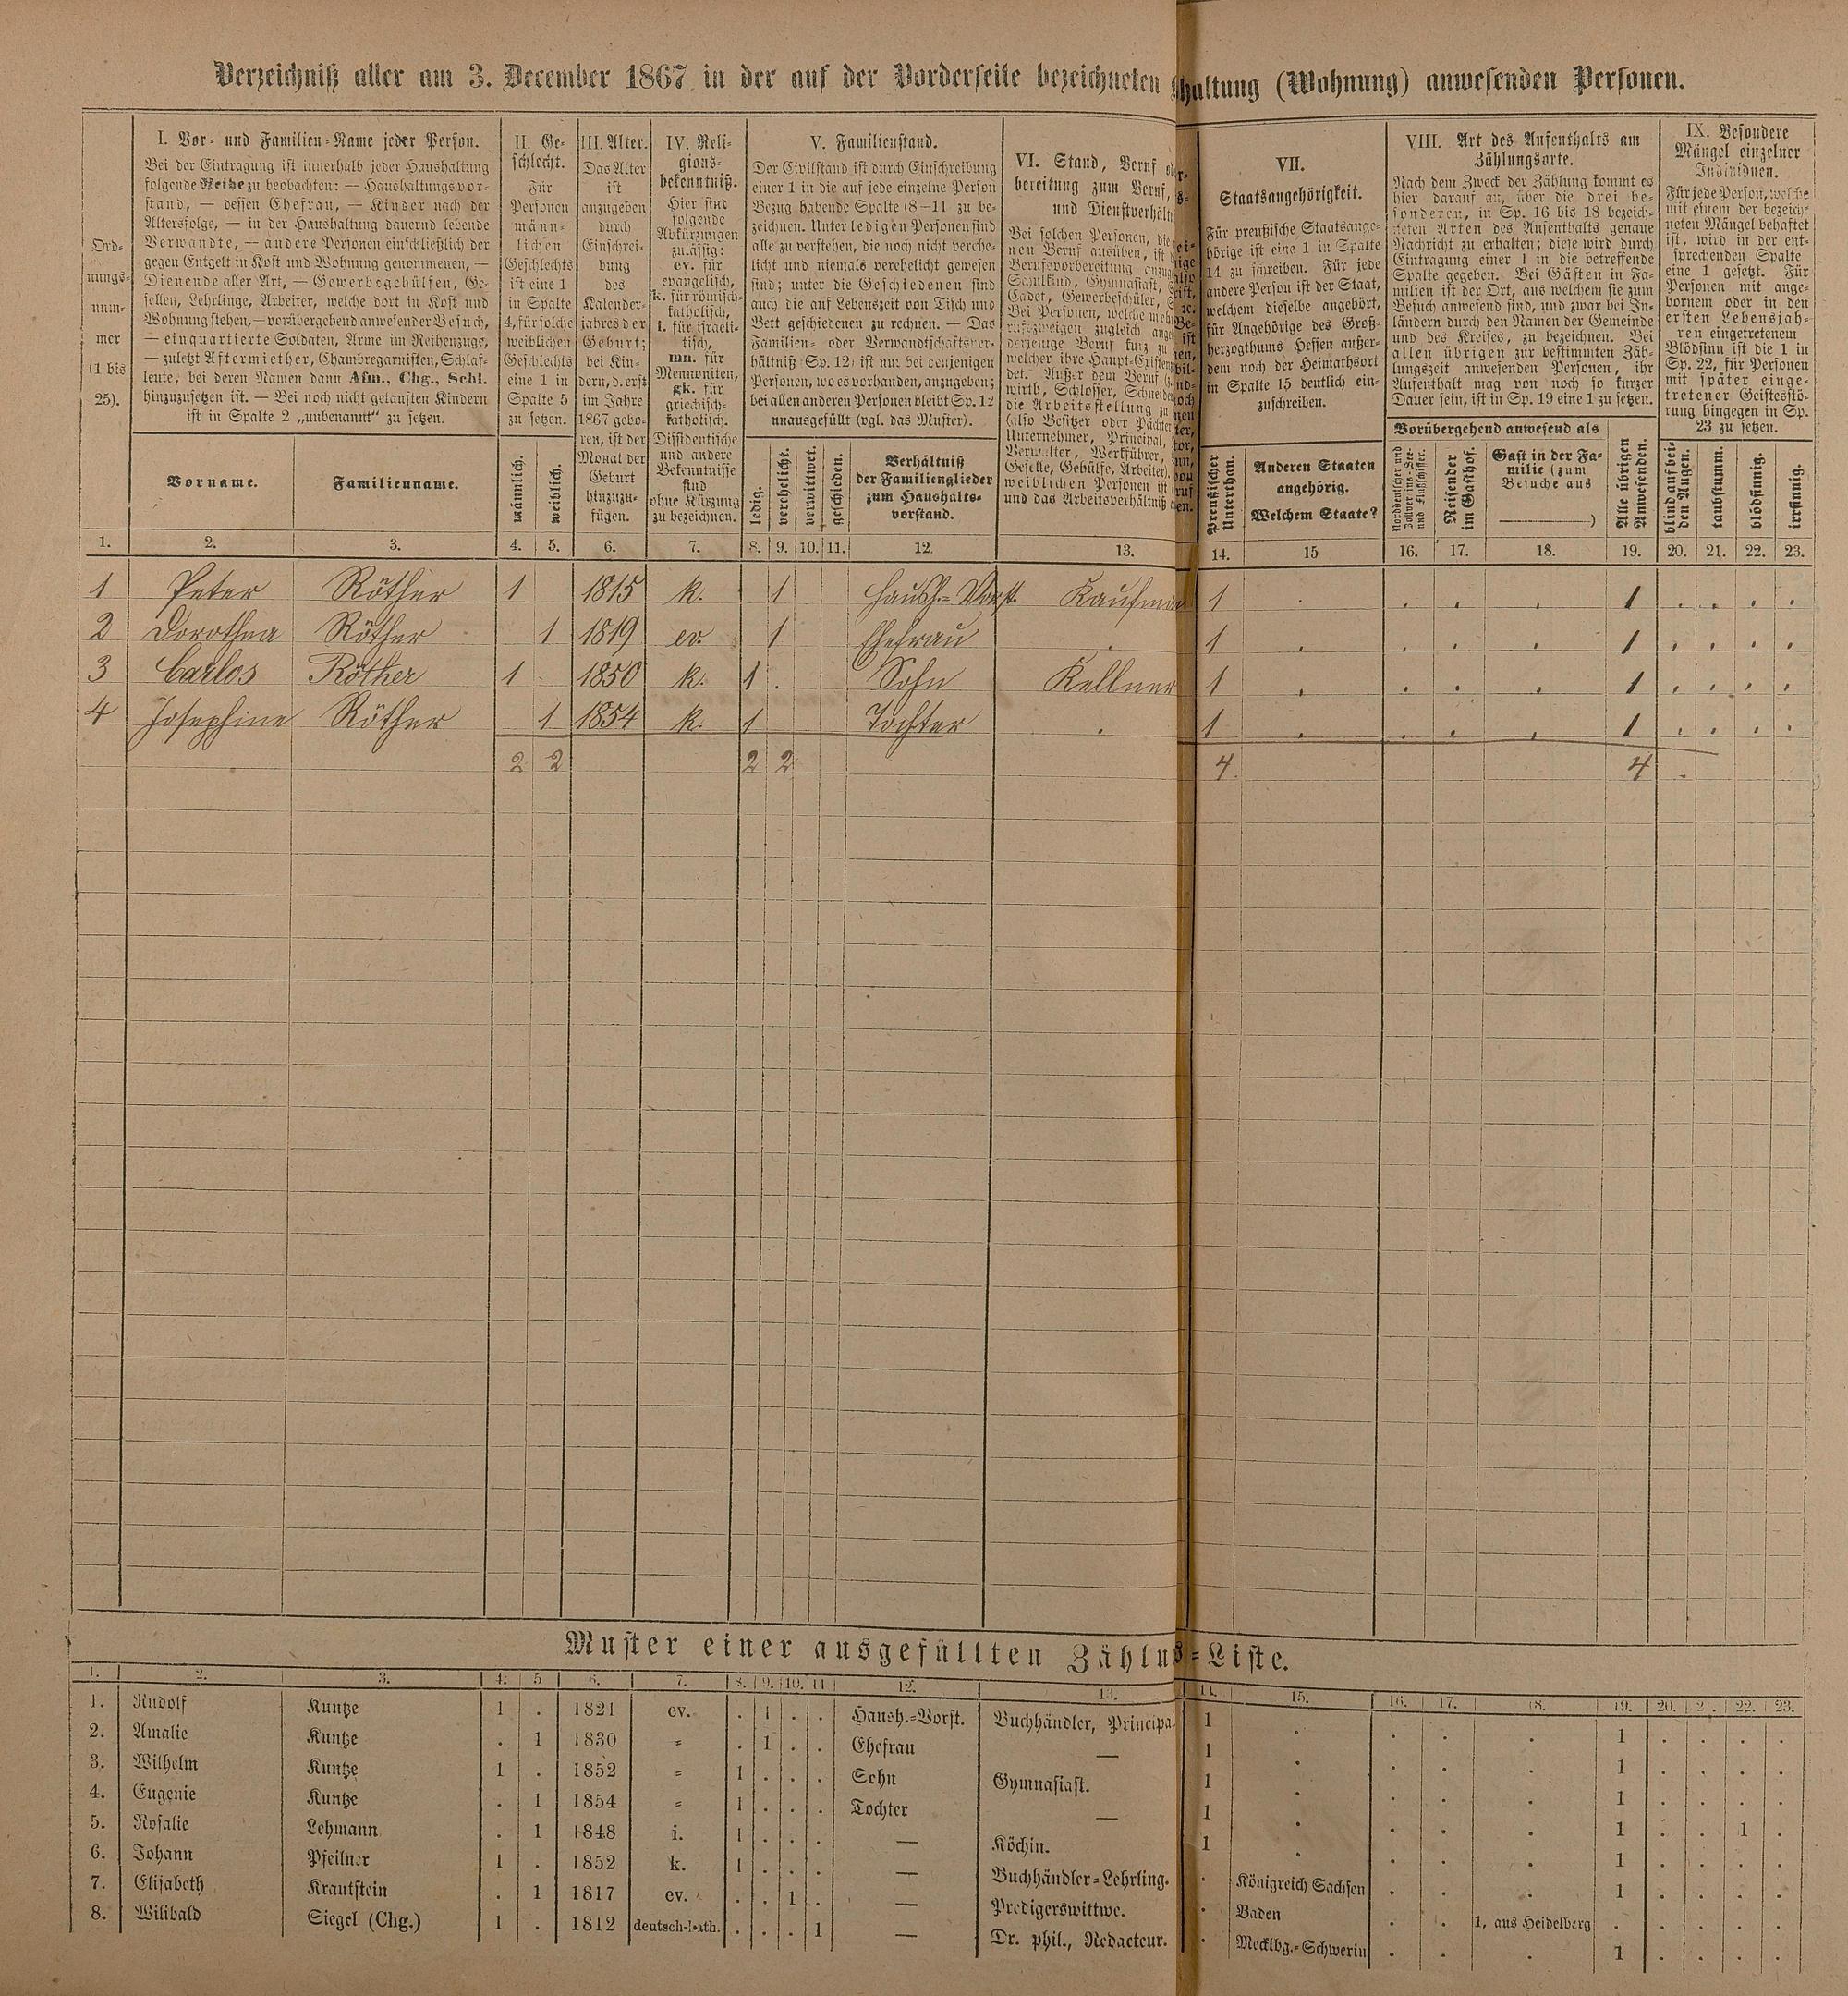 Verzeichniß aller am 3. December 1867 in der auf der Vorderseite bezeichneten haltung (Wohnung) anwesenden Personen.
Ord-
nungs-
num-
mer
(1 bis
25).
I. Vor- und Familien-Name jeder Person.
Bei der Eintragung ist innerhalb jeder Haushaltung
folgende Reihe zu beobachten: — Haushaltungsvor-
stand, — dessen Ehefrau, — Kinder nach der
Altersfolge, — in der Haushaltung dauernd lebende
Verwandte, — andere Personen einschließlich der
gegen Entgelt in Kost und Wohnung genommenen, —
Dienende aller Art, — Gewerbegehülfen, Ge-
sellen, Lehrlinge, Arbeiter, welche dort in Kost und
Wohnung stehen, — vorübergehend anwesender Besuch,
— einquartierte Soldaten, Arme im Reihenzuge,
— zuletzt Aftermiether, Chambregarnisten, Schlaf-
leute, bei deren Namen dann Afm., Chg., Schl.
hinzuzusetzen ist. — Bei noch nicht getauften Kindern
ist in Spalte 2 „unbenannt“ zu setzen.
Vorname.
Familienname.
II. Ge-
schlecht.
Für
Personen
männ-
lichen
Geschlechts
ist eine 1
in Spalte
4, für solche
weiblichen
Geschlechts
eine 1 in
Spalte 5
zu setzen.
männlich.
weiblich.
III. Alter.
Das Alter
ist
anzugeben
durch
Einschrei-
bung
des
Kalender-
jahres der
Geburt;
bei Kin-
dern, d. erst
im Jahre
1867 gebo-
ren, ist der
Monat der
Geburt
hinzuzu-
fügen.
IV. Reli-
gions-
bekenntniß.
Hier sind
folgende
Abkürzungen
zulässig:
ev. für
evangelisch,
k. für römisch-
katholisch,
i. für israeli-
tisch,
mn. für
Mennoniten,
gk. für
griechisch-
katholisch.
Dissidentische
und andere
Bekenntnisse
sind
ohne Kürzung
zu bezeichnen.
V. Familienstand.
Der Civilstand ist durch Einschreibung
einer 1 in die auf jede einzelne Person
Bezug habende Spalte (8—11) zu be-
zeichnen. Unter ledigen Personen sind
alle zu verstehen, die noch nicht verehe-
licht und niemals verehelicht gewesen
sind; unter die Geschiedenen sind
auch die auf Lebenszeit von Tisch und
Bett geschiedenen zu rechnen. — Das
Familien- oder Verwandtschaftsver-
hältniß (Sp. 12) ist nur bei denjenigen
Personen, wo es vorhanden, anzugeben;
bei allen anderen Personen bleibt Sp. 12
unausgefüllt (vgl. das Muster).
ledig.
verehelicht.
verwittwet.
geschieden.
Verhältniß
der Familienglieder
zum Haushalts-
vorstand.
VI. Stand, Beruf oder
bereitung zum Beruf,
und Dienstverhältn
Bei solchen Personen, die
nen Beruf ausüben, ist
Berufsvorbereitung anzug
Schulkind, Gymnasiast,
Cadet, Gewerbeschüler,
Bei Personen, welche meh
rufszweigen zugleich ange
derjenige Beruf kurz zu
welcher ihre Haupt-Existenz
det. Außer dem Beruf
wirth, Schlosser, Schneider
die Arbeitsstellung zu
(also Besitzer oder Pächter,
Unternehmer, Principal,
Verwalter, Werkführer,
Geselle, Gehülfe, Arbeiter).
weiblichen Personen ist
und das Arbeitsverhältniß
VII.
Staatsangehörigkeit.
Für preußische Staatsange-
hörige ist eine 1 in Spalte
14 zu schreiben. Für jede
andere Person ist der Staat,
welchem dieselbe angehört,
für Angehörige des Groß-
herzogthums Hessen außer-
dem noch der Heimathsort
in Spalte 15 deutlich ein-
zuschreiben.
Preußischer
Unterthan.
Anderen Staaten
angehörig.
Welchem Staate?
VIII. Art des Aufenthalts am
Zählungsorte.
Nach dem Zweck der Zählung kommt es
hier darauf an, über die drei be-
sonderen, in Sp. 16 bis 18 bezeich-
neten Arten des Aufenthalts genaue
Nachricht zu erhalten; diese wird durch
Eintragung einer 1 in die betreffende
Spalte gegeben. Bei Gästen in Fa-
milien ist der Ort, aus welchem sie zum
Besuch anwesend sind, und zwar bei In-
ländern durch den Namen der Gemeinde
und des Kreises, zu bezeichnen. Bei
allen übrigen zur bestimmten Zäh-
lungszeit anwesenden Personen, ihr
Aufenthalt mag von noch so kurzer
Dauer sein, ist in Sp. 19 eine 1 zu setzen.
Vorübergehend anwesend als
Norddeutscher und
Zollvereins-See-
und Flußschiffer.
Reisender
im Gasthof.
Gast in der Fa-
milie (zum
Besuche aus
)
Alle übrigen
Anwesenden.
IX. Besondere
Mängel einzelner
Individuen.
Für jede Person, welche
mit einem der bezeich-
neten Mängel behaftet
ist, wird in der ent-
sprechenden Spalte
eine 1 gesetzt. Für
Personen mit ange-
bornem oder in den
ersten Lebensjah-
ren eingetretenem
Blödsinn ist die 1 in
Sp. 22, für Personen
mit später einge-
tretener Geistesstö-
rung hingegen in Sp.
23 zu setzen.
blind auf bei-
den Augen.
taubstumm.
blödsinnig.
irrsinnig.
1. 2. 3. 4. 5. 6. 7. 8. 9. 10. 11. 12. 13. 14. 15 16. 17. 18. 19. 20. 21. 22. 23.
1 Peter Röther 1 1815 k. 1 Haush.-Vorst. Kaufman 1 . . . . 1 . . . .
2 Dorothea Röther 1 1819 ev. 1 Ehefrau . 1 . . . . 1 . . . .
3 Carlos Röther 1 1850 k. 1 . Sohn Kellner 1 . . . . 1 . . . .
4 Josephine Röther 1 1854 k. 1 Tochter . 1 . . . . 1 . . . .
2 2 2 2 4. 4 .
Muster einer ausgefüllten Zählu s-Liste.
1. 2. 3. 4. 5 6. 7. 8. 9. 10. 11 12. 13. 14. 15. 16. 17. 18. 19. 20. 21. 22. 23.
1. Rudolf Kuntze 1 . 1821 ev. . 1 . . Haush.-Vorst. Buchhändler, Principal 1 . . . . 1 . . . .
2. Amalie Kuntze . 1 1830 „ . 1 . . Ehefrau — 1 . . . . 1 . . . .
3. Wilhelm Kuntze 1 . 1852 „ 1 . . . Sohn Gymnasiast. 1 . . . . 1 . . . .
4. Eugenie Kuntze . 1 1854 „ 1 . . . Tochter — 1 . . . . 1 . . 1 .
5. Rosalie Lehmann . 1 1848 i. 1 . . . — Köchin. 1 . . . . 1 . . . .
6. Johann Pfeilner 1 . 1852 k. 1 . . . — Buchhändler-Lehrling. . Königreich Sachsen . . . 1 . . . .
7. Elisabeth Krautstein . 1 1817 ev. . . 1 . — Predigerswittwe. . Baden . . 1, aus Heidelberg . . . . .
8. Wilibald Siegel (Chg.) 1 . 1812 deutsch-kath. . . . 1 — Dr. phil., Redacteur. . Mecklbg.-Schwerin . . . 1 . . . .